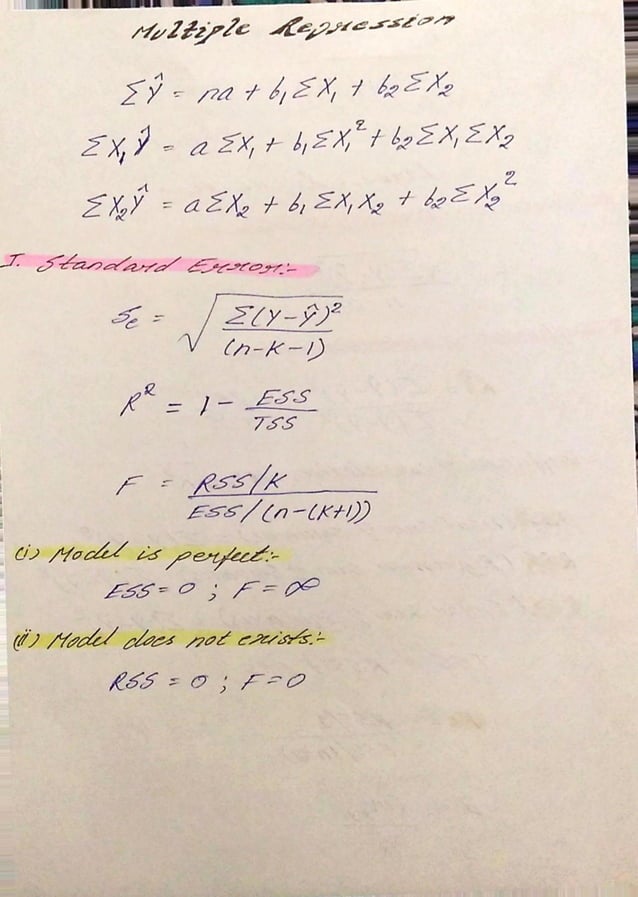 Multiple Regression
ΣŶ = na + b₁ΣX₁ + b₂ΣX₂
ΣX₁Ŷ = aΣX₁ + b₁ΣX₁² + b₂ΣX₁ΣX₂
ΣX₂Ŷ = aΣX₂ + b₁ΣX₁X₂ + b₂ΣX₂²
I. Standard Error:-
Se = √(Σ(Y-Ŷ)² / (n-K-1))
R² = 1 - ESS/TSS
F = RSS/K / ESS/(n-(K+1))
(i) Model is perfect:-
ESS = 0 ; F = ∞
(ii) Model does not exists:-
RSS = 0 ; F = 0